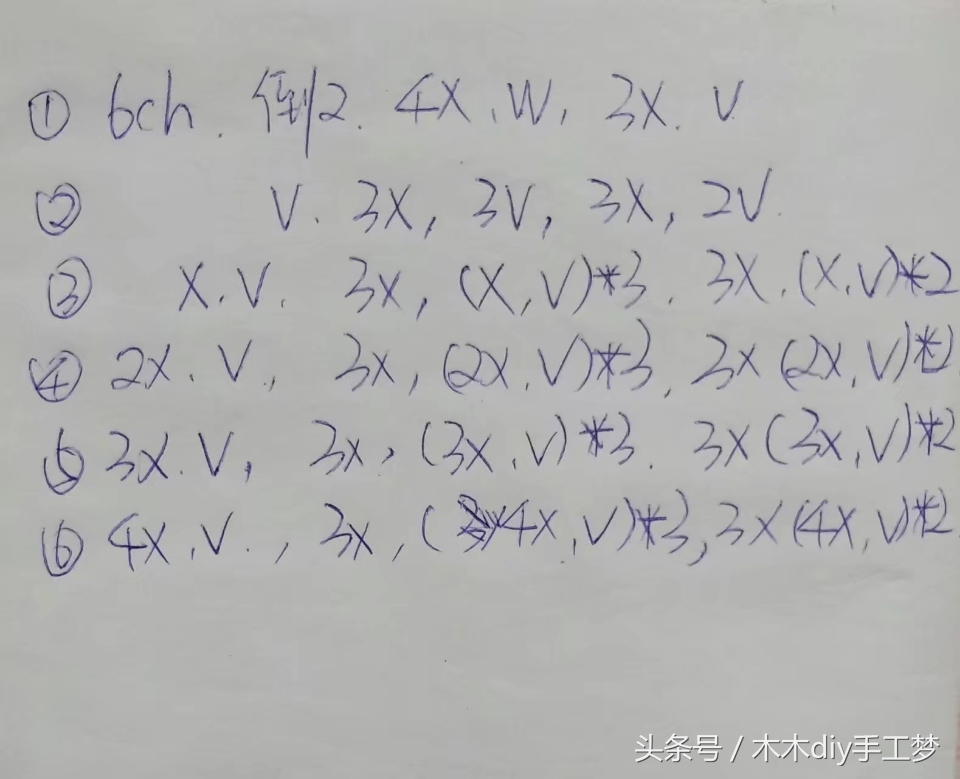 ① 6ch. 倒2. 4X, W, 3X. V
② V. 3X, 3V, 3X, 2V.
③ X. V. 3X, (X, V)*3. 3X. (X, V)*2
④ 2X. V, 3X, (2X, V)*3, 3X (2X, V)*2
⑤ 3X. V, 3X, (3X, V)*3. 3X (3X, V)*2
⑥ 4X, V., 3X, (4X, V)*3, 3X (4X, V)*2
头条号 / 木木diy手工梦